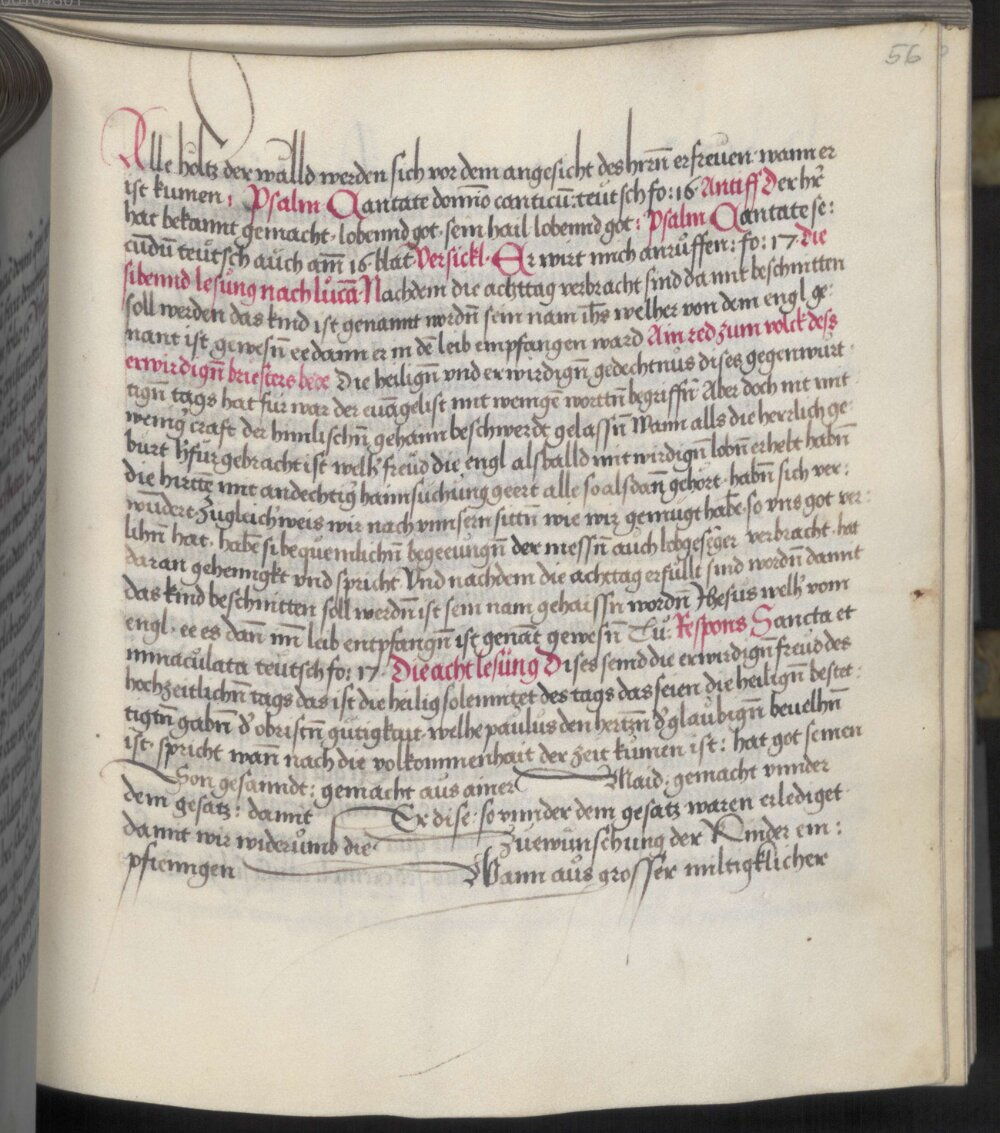 56
Alle holtz der walld werden sich vor dem angesicht des hrrn̄ erfreuen wann er
ist kumen: Psalm Cantate domīo canticū: teutsch fo: 16 Antiff Der hr̄
hat bekannt gemacht. lobennd got. sein hail lobennd got: Psalm Cantate se:
cūdū teutsch auch am̄ 16 blat Versickl. Er wirt mich anrüffen: fo: 17. Die
sibennd lesung nach lucā. Nachdem die achttag verbracht sind damit beschnitten
soll werden das kind ist genannt wordn̄ sein nam ih̄s welher von dem engl ge:
nant ist gewesn̄ ee dann er in dē leib empfangen ward Ain red zum volck des
erwirdign̄ briesters bede Die heilign̄ vnd erwirdign̄ gedechtnus dises gegenwurt
tign̄ tags hat fur war der euāgelist mit wenige worttn̄ begriffn̄ Aber doch nit mit
wenig craft der himlischn̄ gehaim beschwerdt gelassn̄ Wann alls die herrlich ge
burt h̄fur gebracht ist welh̄ freud die engl alsballd mit wirdign̄ lobn̄ erhebt habn̄
die hirttē mit andechtig haimsuchung geert alle so alsdan̄ gehort. habn̄ sich ver:
wundert. Zugleich weis wir nach vnnsern sittn̄ wie wir gemugt habē. so vns got ver:
lihn̄ hat. habē si bequemlichn̄ begeeungn̄ der messn̄ auch lobgesēger verbracht. hat
daran gehenngkt vnd spricht. Vnd nachdem die achttag erfullt sind wordn̄ damit
das kind beschnitten soll werdn̄ ist sein nam gehaissn̄ wordn̄ Jhesus welh̄ vom
engl. ee es dan̄ im̄ leib entpfangn̄ ist genāt gewesn̄ Tu: Respons Sancta et
immaculata teutsch fo: 17. Die acht lesung Dises seind die erwirdign̄ freud des
hochzeitlichn̄ tags das ist die heilig solemnitet des tags das seien die heilign̄ bestet:
tigtn̄ gabn̄ d̄ obristn̄ gutigkait. welhe paulus den hertzn̄ d̄ glaubign̄ beuelhn̄
ist. spricht wan̄ nach die volkommenhait der zeit kumen ist: hat got seinen
Son gesanndt: gemacht aus ainer Maid: gemacht vnnder
dem gesatz: damit Er dise. so vnnder dem gesatz waren erlediget
damit wir widerumb die Zuewunschung der Kinder em:
pfienngen Wann aus grosser miltigklicher